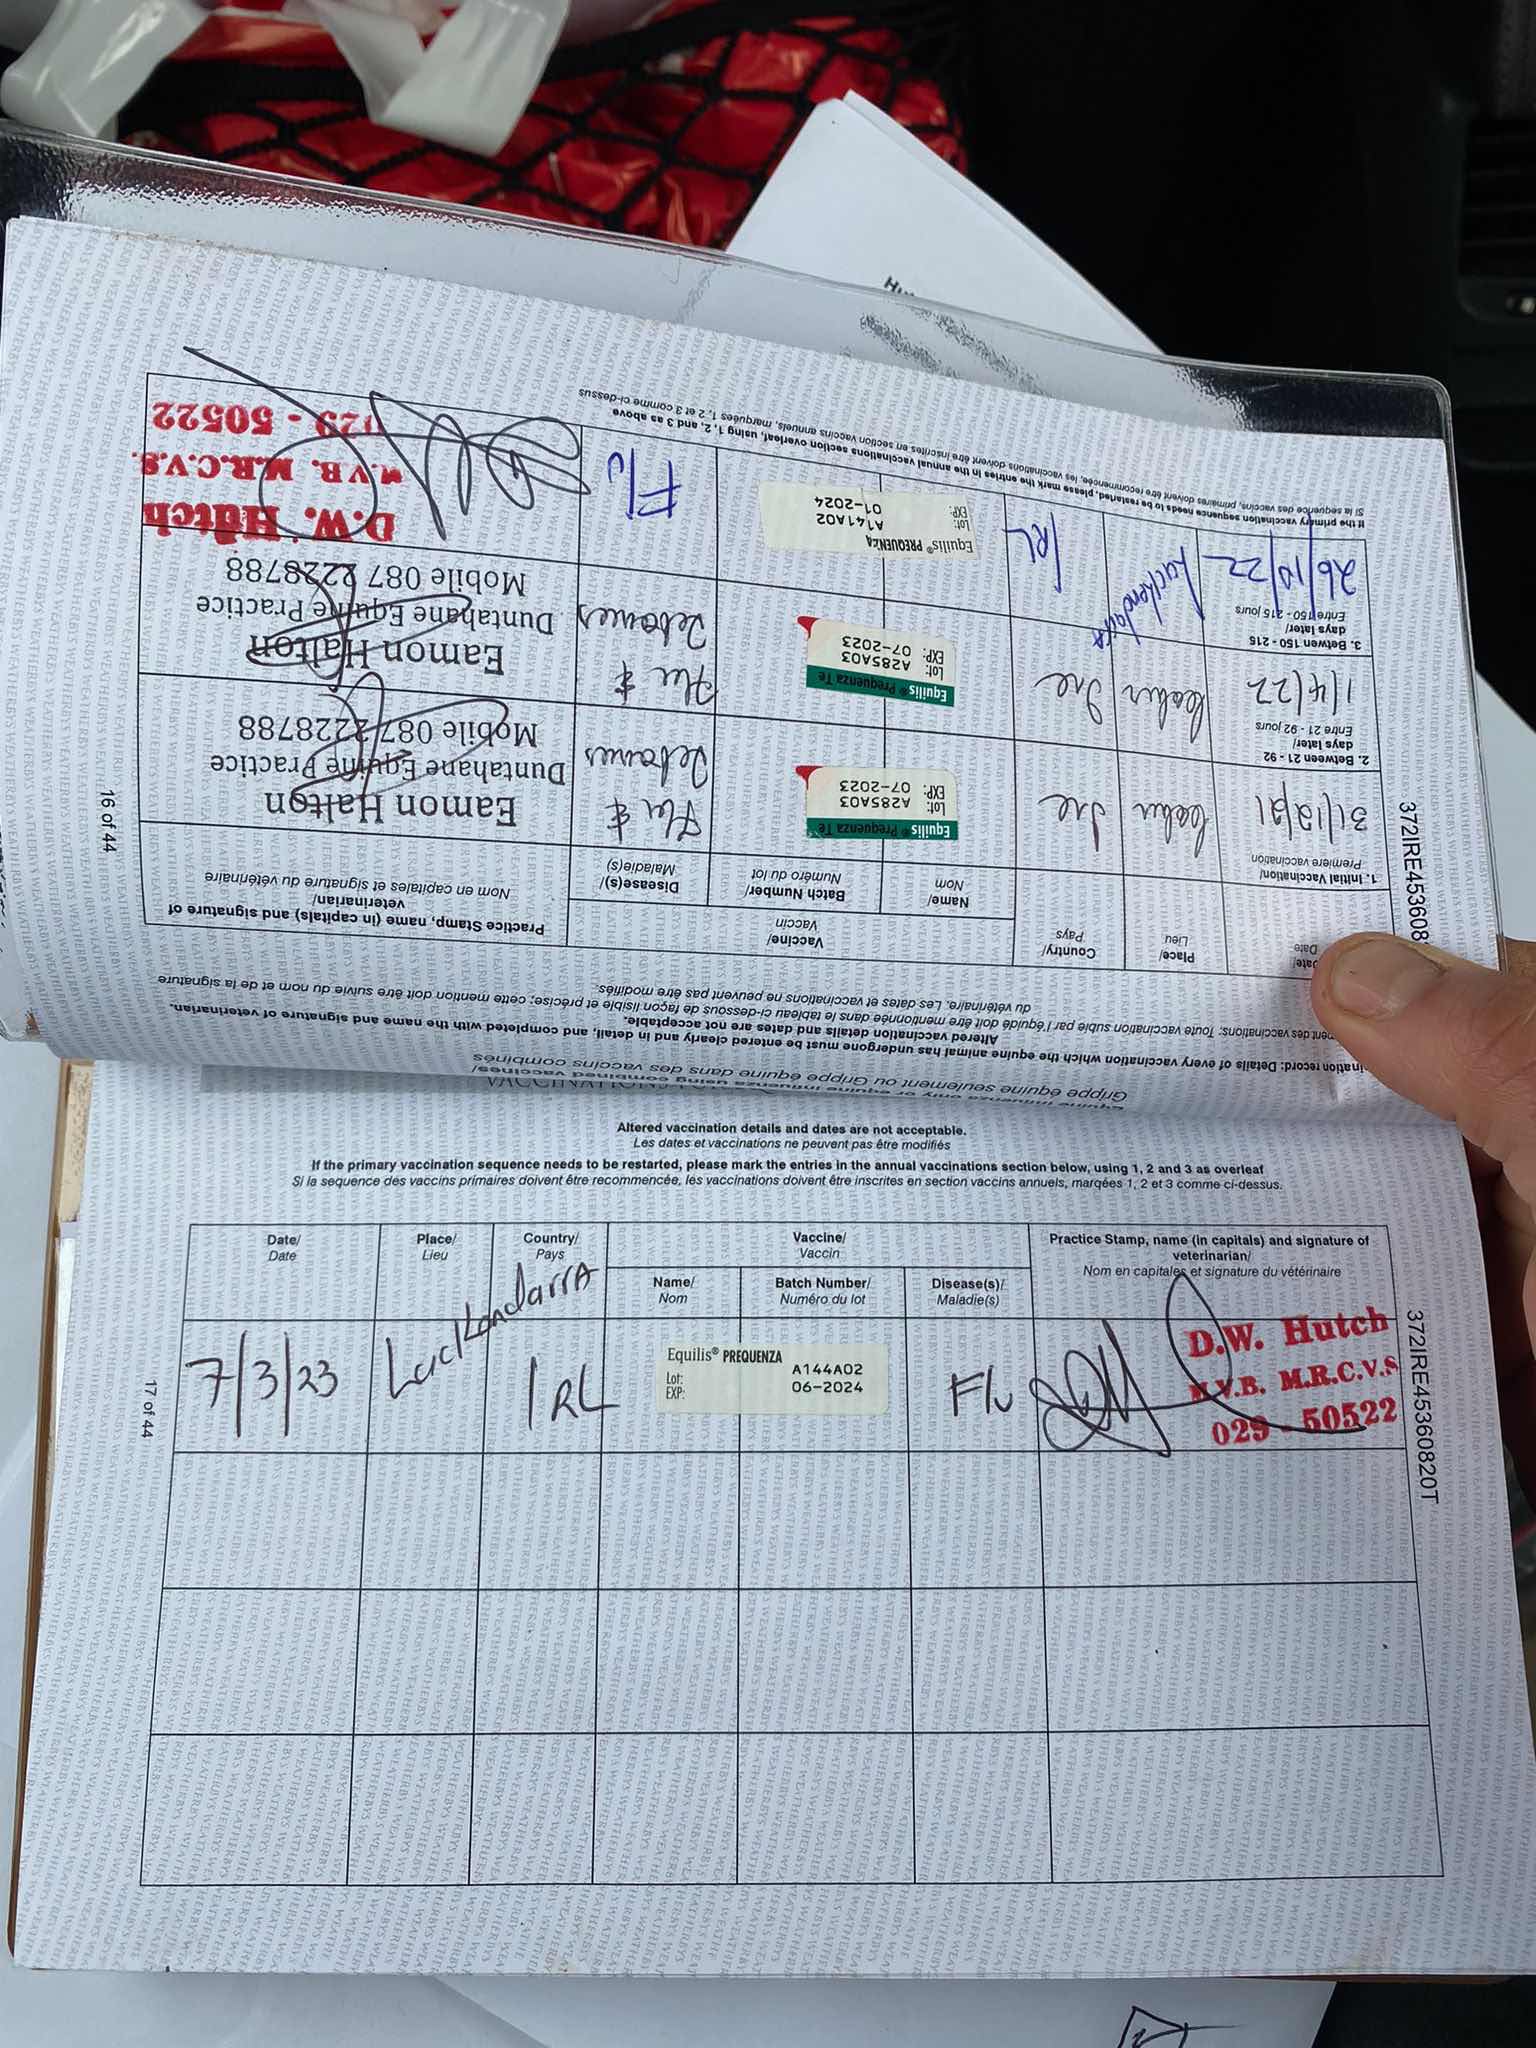 Equine influenza only or equine influenza using combined vaccines/
Grippe équine seulement ou Grippe équine dans des vaccins combinés
ination record: Details of every vaccination which the equine animal has undergone must be entered clearly and in detail, and completed with the name and signature of veterinarian.
Altered vaccination details and dates are not acceptable.
ment des vaccinations: Toute vaccination subie par l'équidé doit être mentionnée dans le tableau ci-dessous de façon lisible et précise; cette mention doit être suivie du nom et de la signature
du vétérinaire. Les dates et vaccinations ne peuvent pas être modifiés.
Date/
Date
Place/
Lieu
Country/
Pays
Vaccine/
Vaccin
Name/
Nom
Batch Number/
Numéro du lot
Disease(s)/
Maladie(s)
Practice Stamp, name (in capitals) and signature of
veterinarian/
Nom en capitales et signature du vétérinaire
1. Initial Vaccination/
Premiere vaccination
31/12/21
Ire
Equilis® Prequenza Te
Lot: A285A03
EXP: 07-2023
Flu &
Tetanus
Eamon Halton
Duntahane Equine Practice
Mobile 087 2228788
2. Between 21 - 92
days later/
Entre 21 - 92 jours
1/4/22
Ire
Equilis® Prequenza Te
Lot: A285A03
EXP: 07-2023
Flu &
Tetanus
Eamon Halton
Duntahane Equine Practice
Mobile 087 2228788
3. Betwen 150 - 215
days later/
Entre 150 - 215 jours
26/10/22
IRL
Equilis® PREQUENZA
Lot: A141A02
EXP: 01-2024
Flu
D.W. Hutch
M.V.B. M.R.C.V.S.
029 - 50522
If the primary vaccination sequence needs to be restarted, please mark the entries in the annual vaccinations section overleaf, using 1, 2, and 3 as above
Si la sequence des vaccins, primaires doivent être recommencée, les vaccinations doivent être inscrites en section vaccins annuels, marquées 1, 2 et 3 comme ci-dessus
16 of 44
372IRE453608
VACCINATIONS
Altered vaccination details and dates are not acceptable.
Les dates et vaccinations ne peuvent pas être modifiés
If the primary vaccination sequence needs to be restarted, please mark the entries in the annual vaccinations section below, using 1, 2 and 3 as overleaf
Si la sequence des vaccins primaires doivent être recommencée, les vaccinations doivent être inscrites en section vaccins annuels, marqées 1, 2 et 3 comme ci-dessus.
Date/
Date
Place/
Lieu
Country/
Pays
Vaccine/
Vaccin
Name/
Nom
Batch Number/
Numéro du lot
Disease(s)/
Maladie(s)
Practice Stamp, name (in capitals) and signature of
veterinarian/
Nom en capitales et signature du vétérinaire
7/3/23
LackendarrA
IRL
Equilis® PREQUENZA
Lot: A144A02
EXP: 06-2024
Flu
D.W. Hutch
M.V.B. M.R.C.V.S
029 - 50522
17 of 44
372IRE45360820T